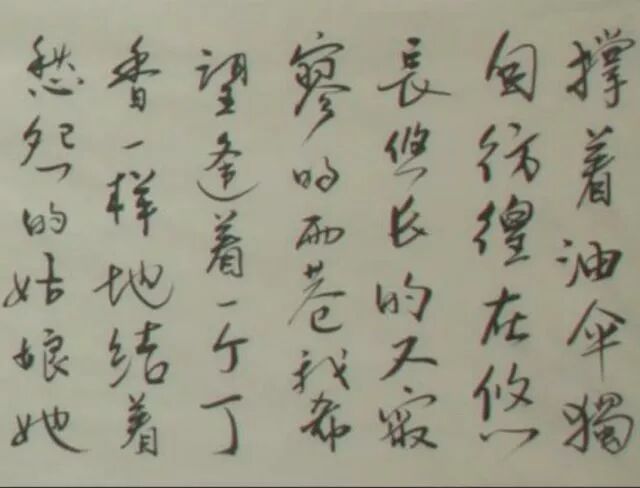 撑着油伞獨
自彷徨在悠
長悠长的又寂
寥的雨巷我希
望逢着一个丁
香一样地结着
愁怨的姑娘她